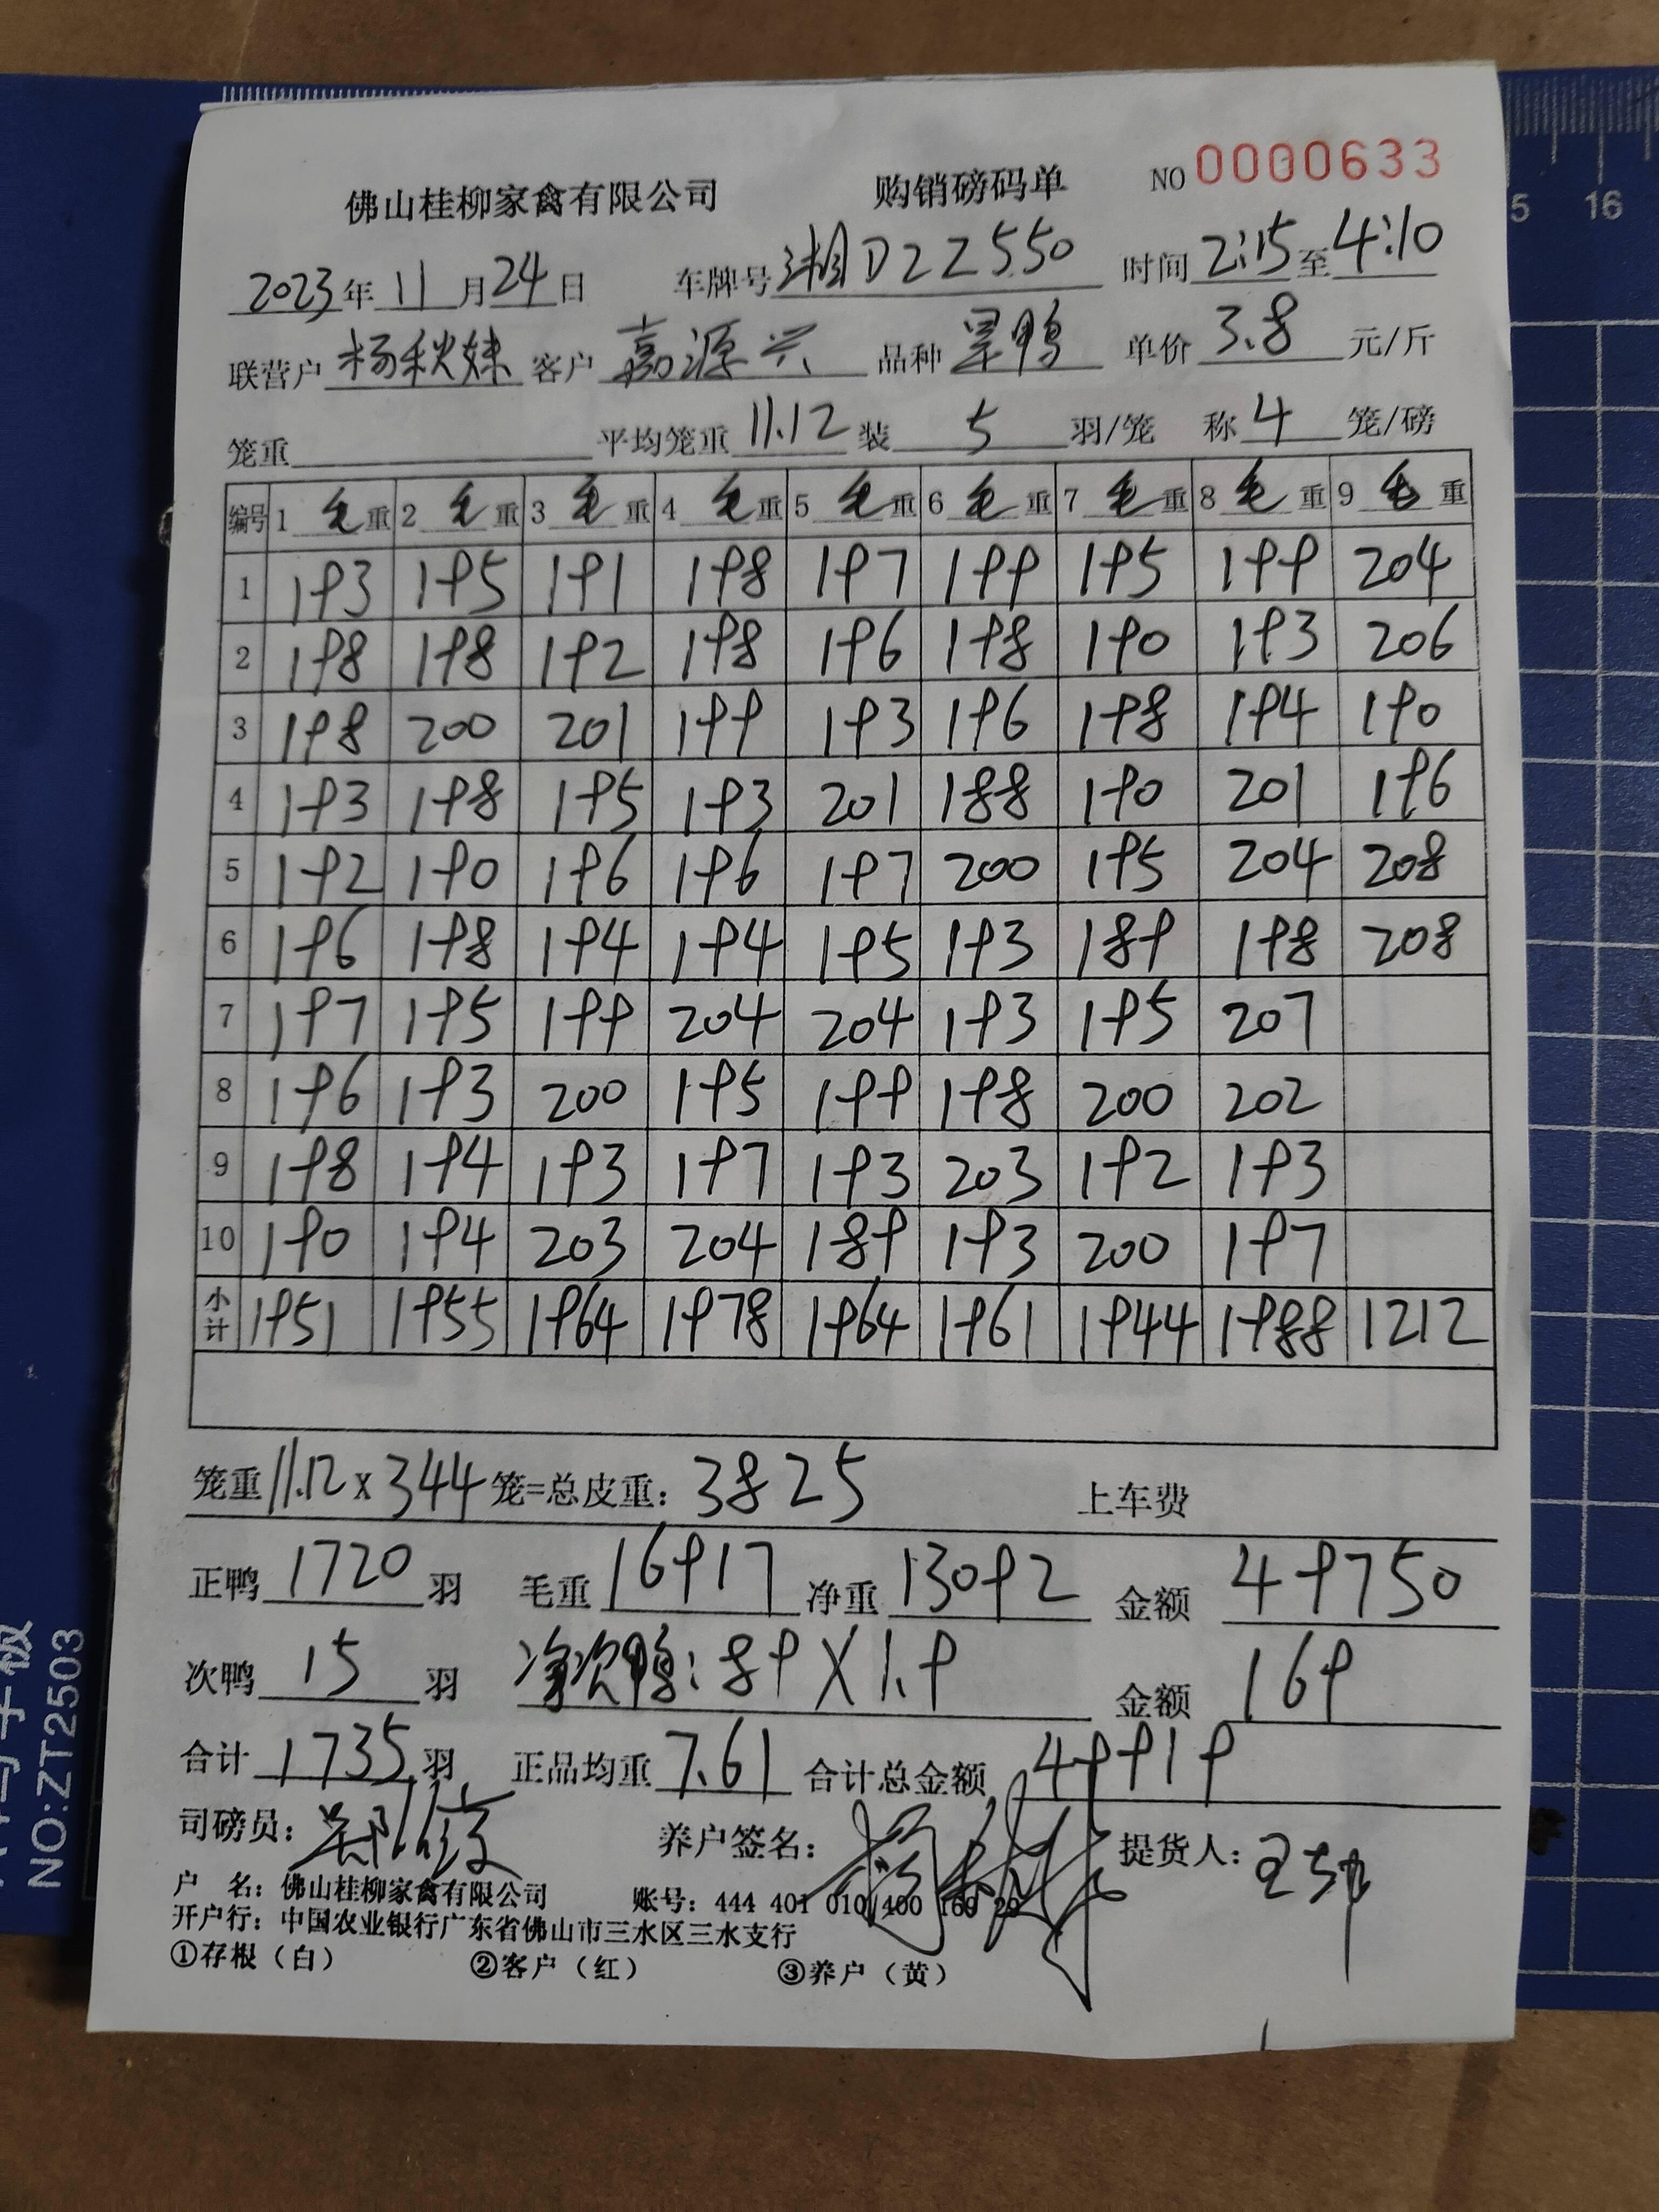 佛山桂柳家禽有限公司 购销磅码单 NO 0000633
2023年11月24日 车牌号湘D2Z550 时间2:15至4:10
联营户杨秋妹客户嘉源兴 品种旱鸭 单价3.8元/斤
笼重 平均笼重11.12装5羽/笼 称4笼/磅
编号 1毛重 2毛重 3毛重 4毛重 5毛重 6毛重 7毛重 8毛重 9毛重
1 193 195 191 198 197 199 195 199 204
2 198 198 192 198 196 198 190 193 206
3 198 200 201 199 193 196 198 194 190
4 193 198 195 193 201 188 190 201 196
5 192 190 196 196 197 200 195 204 208
6 196 198 194 194 195 193 189 198 208
7 197 195 199 204 204 193 195 207
8 196 193 200 195 199 198 200 202
9 198 194 193 197 193 203 192 193
10 190 194 203 204 189 193 200 197
小计 1951 1955 1964 1978 1964 1961 1944 1988 1212
笼重11.12x344笼=总皮重:3825 上车费
正鸭1720羽 毛重16917净重13092 金额49750
次鸭15羽 净次鸭:89X1.9 金额169
合计1735羽 正品均重7.61合计总金额49919
司磅员: 养户签名: 提货人:
户 名:佛山桂柳家禽有限公司 账号:444 401 010 400 169 29
开户行:中国农业银行广东省佛山市三水区三水支行
①存根(白) ②客户(红) ③养户(黄)
5 16
NO:ZT2503